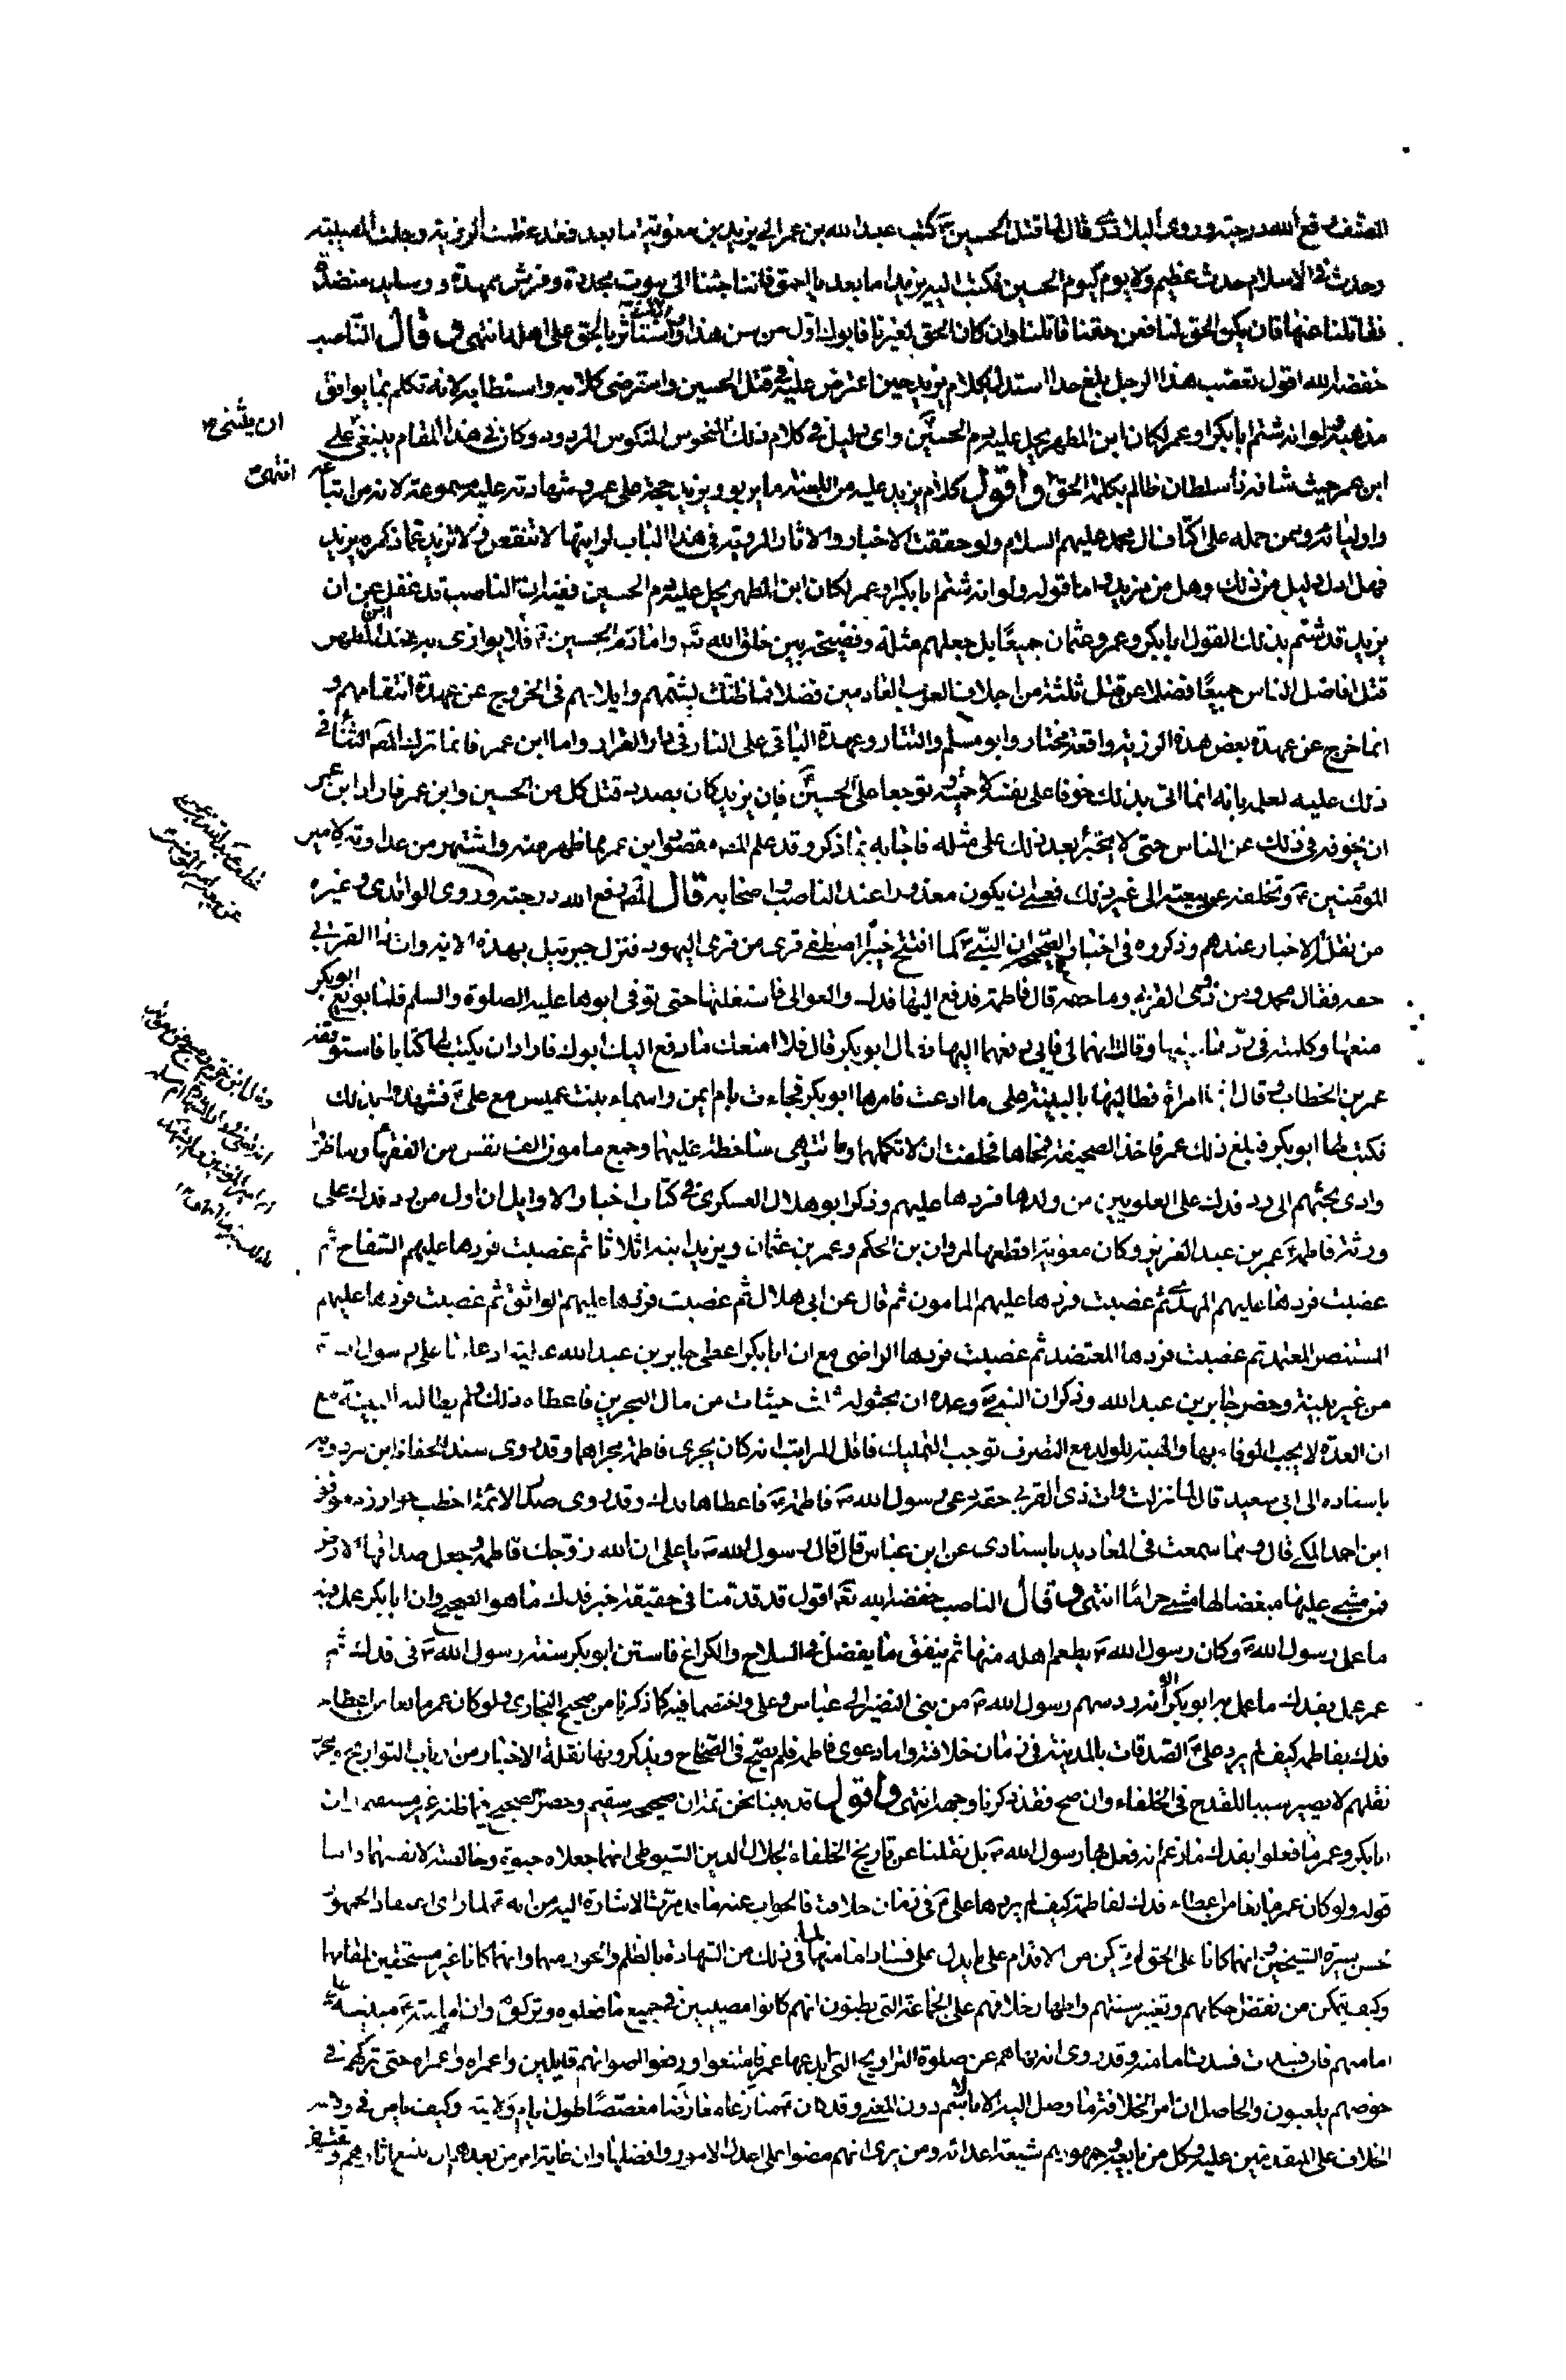 المصنف رفع الله درجته وروى البلاذري قال لما قتل الحسين ع كتب عبد الله بن عمر الى يزيد بن معوية اما بعد فقد عظمت الرزية وجلت المصيبة
وحدث في الاسلام حدث عظيم ولا يوم كيوم الحسين فكتب اليه يزيد اما بعد يا احمق فاننا جئنا الى بيوت مجددة وفرش ممهدة ووسايد منضدة
فقاتلنا عنها فان يكن الحق لنا فعن حقنا قاتلنا وان كان الحق لغيرنا فابوك اول من سن هذا واستاثر بالحق على اهله انتهى قال الناصب
خفضه الله اقول تعصب هذا الرجل بلغ حدا استدل بكلام يزيد حين اعترض عليه في قتل الحسين واسترضى كلامه واستطابه لانه تكلم بما يوافق
مذهبه ولو انه شتم ابا بكر او عمر لكان ابن المطهر يحل عليه دم الحسين واى دليل في كلام ذلك المنحوس المنكوس المردود وكان في هذا المقام ينبغي على
ان يثني
ابن عمر حيث شافه ذا سلطان ظالم بكلمة الحق واقول كلام يزيد عليه من اللعنة ما يربو ويزيد حجة على عمر وشهادته عليه مسموعة لانه من اتباعه
انتهى
واوليائه ومن حمله على اكتاف ال محمد عليهم السلام ولو حققت الاخبار والاثار المروية في هذا الباب لرايتها لا تنقص ولا تزيد عما ذكره يزيد
فهل ادل دليل من ذلك وهل من مزيد واما قوله ولو انه شتم ابا بكر او عمر لكان ابن المطهر يحل عليه دم الحسين ففيه ان الناصب قد غفل عن ان
يزيد قد شتم بذلك القول ابا بكر وعمر وعثمان جميعا بل جعلهم مثلة وفضيحة بين خلق الله تع واما دم الحسين ع فلا يوازى به عند ابن المطهر
قتل افاضل الناس جميعا فضلا عن قتل ثلثة من اجلاف العرب القادمين فضلا فما ظنك بشتمهم وايلامهم في الخروج عن عهدة انتقامهم و
انما خرج عن عهدة بعض هذه الرزية واقعة مختار وابو مسلم والتتار وعهدة الباقي على النار في دار القرار واما ابن عمر فانما ترك المص الثناء في
ذلك عليه لعلمه بانه انما اتى بذلك خوفا على نفسه لا حمية وتوجعا على الحسين فان يزيد كان بصدد قتل كل من الحسين وابن عمر فاراد ابن عمر
ان يخوفه في ذلك عن الناس حتى لا يتجر بعد ذلك على مثله فاجابه بما ذكر وقد علم المص مقصود ابن عمر بما ظهر منه واشتهر من عداوته لامير
المؤمنين ع وتخلفه عن بيعته الى غير ذلك فعسى ان يكون معذورا عند الناصب واصحابه قال المص رفع الله درجته وروى الواقدي وغيره
من نقلة الاخبار عندهم وذكروه في اخبارهم الصحيحة ان النبي ص لما افتتح خيبر اصطفى قرى من قرى اليهود فنزل جبرئيل بهذه الاية وات ذا القربى
حقه فقال محمد ومن ذوى القربى وما حقه قال فاطمة فدفع اليها فدك والعوالى فاستغلتها حتى توفى ابوها عليه الصلوة والسلم فلما بويع ابو بكر
منعها وكلمته في ردها اليها وقالت انهما لي فابى دفعهما اليها فقال ابو بكر قال فلا امنعك ما دفع اليك ابوك فاراد ان يكتب لها كتابا فاستوقفه
عمر بن الخطاب وقال انها امراة فطالبها بالبينة على ما ادعت فامرها ابو بكر فجاءت بام ايمن واسماء بنت عميس مع على ع فشهدوا بذلك
فكتب لها ابو بكر فبلغ ذلك عمر فاخذ الصحيفة فمحاها فحلفت ان لا تكلمهما وماتت وهى ساخطة عليهما وجمع مامون الف نفس من الفقهاء وتناظروا
وادى بحثهم الى رد فدك على العلويين من ولدها فردها عليهم وذكر ابو هلال العسكري في كتاب اخبار الاوايل ان اول من رد فدك على
ورثة فاطمة ع عمر بن عبد العزيز وكان معوية اقطعها لمروان بن الحكم وعمر بن عثمان ويزيد ابنه اثلاثا ثم غصبت فردها عليهم السفاح ثم
غصبت فردها عليهم المهدي ثم غصبت فردها عليهم المامون ثم قال عن ابي هلال ثم غصبت فردها عليهم الواثق ثم غصبت فردها عليهم
المستنصر المعتمد ثم غصبت فردها المعتضد ثم غصبت فردها الراضى مع ان ابا بكر اعطى جابر بن عبد الله عطية ادعاها على رسول الله ص
من غير بينة وحضر جابر بن عبد الله وذكر ان النبي ص وعده ان يحثو له ثلث حيثات من مال البحرين فاعطاه ذلك ولم يطالبه البينة مع
ان العدة لا يجب الوفاء بها والهبة للولد مع التصرف توجب التمليك فاقل المراتب انه كان يجرى فاطمة مجراها وقد روى سند الحفاظ ابن مردويه
باسناده الى ابي سعيد قال لما نزلت وات ذى القربى حقه دعى رسول الله ص فاطمة ع فاعطاها فدك وقد روى صدر الائمة اخطب خوارزم موفق
ابن احمد المكي قال ومما سمعت في المفاريد باسنادى عن ابن عباس قال قال رسول الله ص يا علي ان الله زوجك فاطمة وجعل صداقها الارض
فمن مشى عليها مبغضا لها مشى حراما انتهى قال الناصب خفضه الله تع اقول قد قدمنا في حقيقة خبر فدك ما هو الصحيح وان ابا بكر عمل فيه
ما عمل رسول الله ص وكان رسول الله ص يطعم اهله منها ثم ينفق ما يفضل في السلاح والكراع فاستن ابو بكر سنة رسول الله ص في فدك ثم
عمر عمل بفدك ما عمل به ابو بكر الا انه رد سهم رسول الله ص من بني النضير الى عباس وعلى واختصما فيه كما ذكرنا من صحيح البخاري ولو كان عمر مانعا من اعطاء
فدك بفاطمة كيف لم يرد على ع الصدقات بالمدينة في زمان خلافته واما دعوى فاطمة فلم يصح في الصحاح ويذكرونها نقلة الاخبار من ارباب التواريخ ومجرد
نقلهم لا يصير سببا للقدح في الخلفاء وان صح فقد ذكرنا وجهه انتهى واقول قد بينا نحن ثمة ان صحيحه سقيم وحصر الصحيح فيما ظنه غير مستقيم وان
ابا بكر وعمر ما فعلوا بفدك ما زعم انه فعل بها رسول الله ص بل نقلنا عن تاريخ الخلفاء لجلال الدين السيوطى انهما جعلاه حبوة وخالصة لانفسهما واما
قوله ولو كان عمر مانعا من اعطاء فدك لفاطمة كيف لم يردها على ع في زمان خلافته فالجواب عنه ما قد مرت الاشارة اليه من انه ع لما راى اعتقاد الجمهور
حسن سيرة الشيخين وانهما كانا على الحق لم يتمكن من الاقدام على ما يدل على فساد امامتهما لما في ذلك من الشهادة بالظلم والجور منهما وانهما كانا غير مستحقين لمقامهما
وكيف يتمكن من نقض احكامهم وتغيير سنتهم واظهار خلافهم على الجماعة التي يظنون انهم كانوا مصيبين في جميع ما فعلوه وتركوه وان امامته ع مبنية على
امامتهم فان فسدت فسدت امامته وقد روى انه نهاهم عن صلوة التراويح التي ابدعها عمر فامتنعوا ورفعوا اصواتهم قايلين واعمراه واعمراه حتى تركهم في
خوضهم يلعبون والحاصل ان امر الخلافة ما وصل اليه الا بالاسم دون المعنى وقد كان ع منازعا معارضا مغصصا طول ايام ولايته وكيف يامن في ولايته
الخلاف على المتقدمين عليه وكل من بايعه وجمهورهم شيعة اعدائه ومن يرى انهم مضوا على اعدل الامور وافضلها وان غاية امر من بعدهم ان يتبع اثارهم ويقتفي